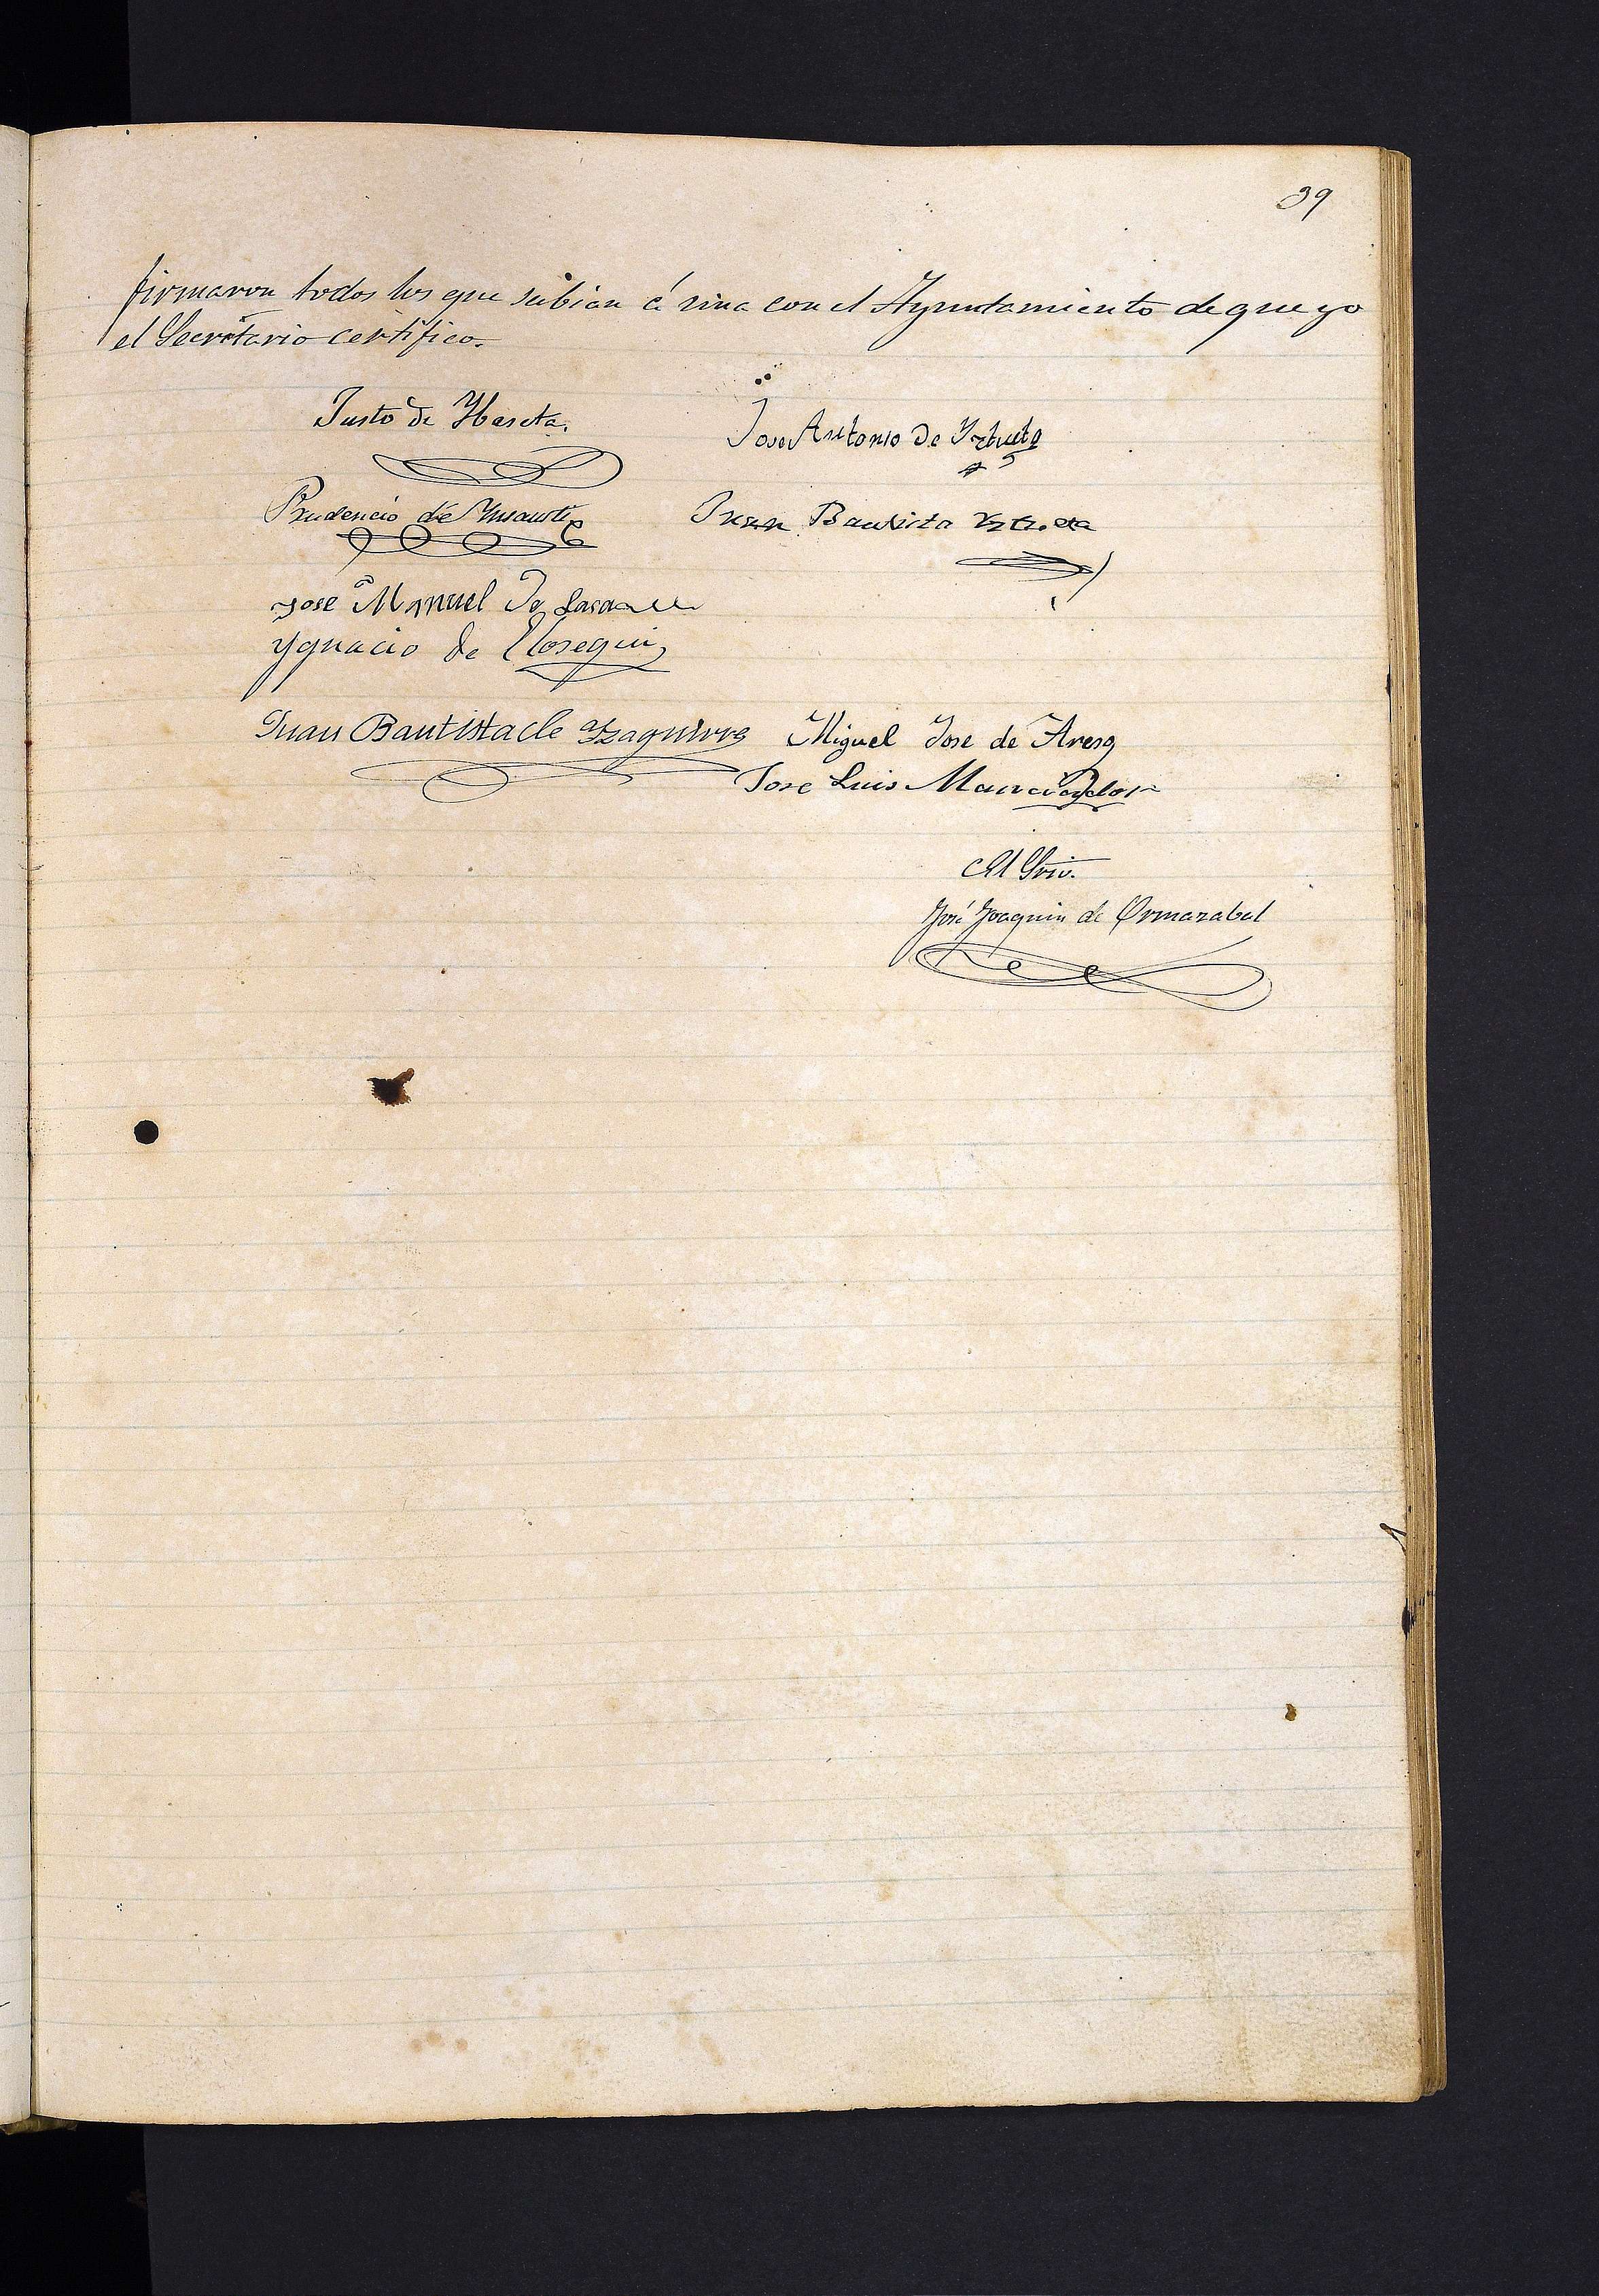 39
firmaron todos los que sabian é una con el Ayuntamiento de que yo
el Secretario certifico.
Justo de Ybarcta.
Jose Antonio de Yztueta
Prudencio de Ynsausti
Juan Bautista Yztueta
Jose Manuel de Lasa
Ygnacio de Elosegui
Juan Bautista de Yzaguirre
Miguel Jose de Areso
Jose Luis Maurcia
El Srio.
José Joaquin de Ormazabal